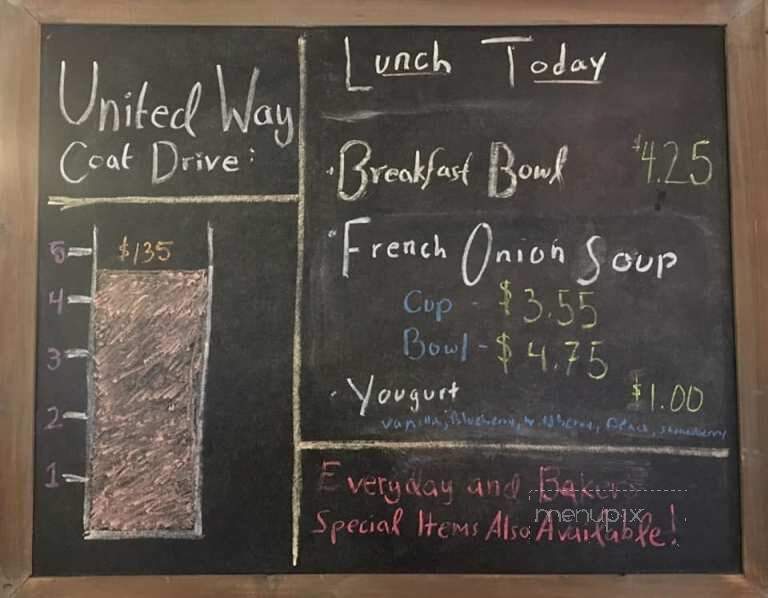 United Way
Coat Drive:
5
$135
4
3
2
1
Lunch Today
Breakfast Bowl $4.25
French Onion Soup
Cup - $3.55
Bowl - $4.75
Yougurt $1.00
vanilla, Blueberry, Peach, strawberry
Everyday and Bakers
Special Items Also Available!
menupix